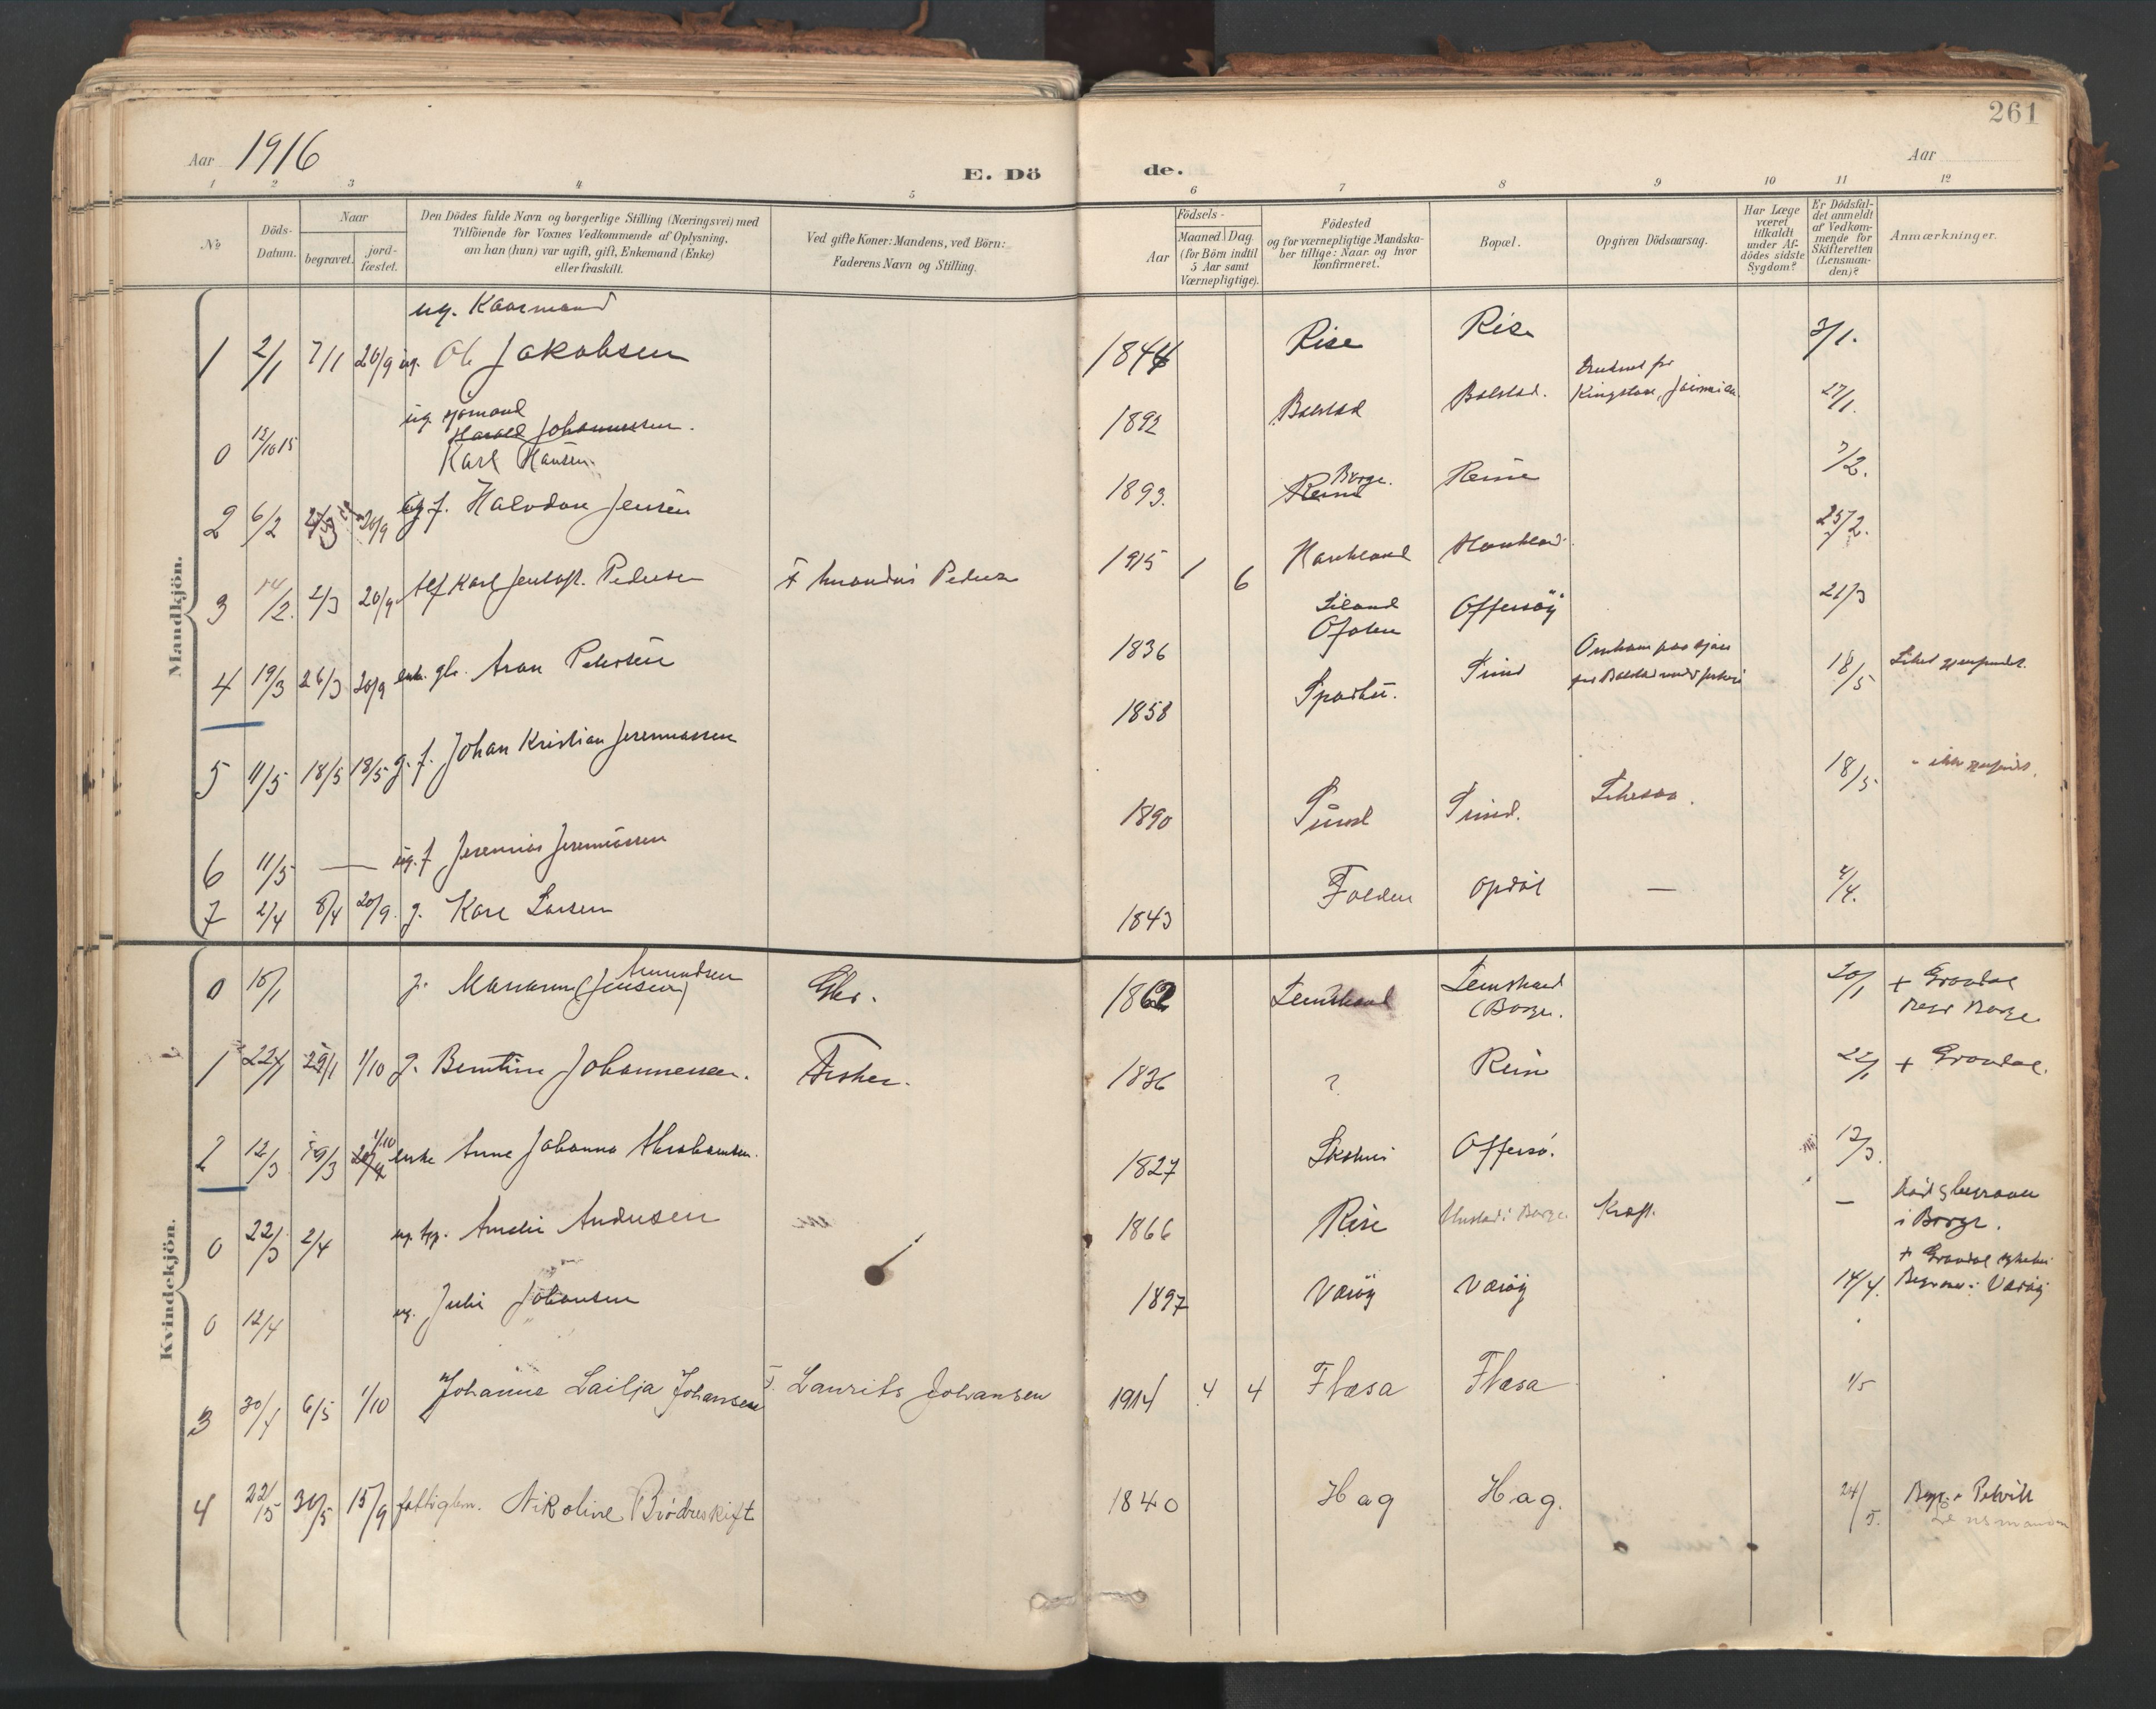 261
Aar 1916
E. Dö
de.
Aar
1 2 3 4 5 6 7 8 9 10 11 12
№
Döds-
Datum.
Naar
begravet.
jord-
fæstet.
Den Dödes fulde Navn og borgerlige Stilling (Næringsvei) med
Tilföiende for Voxnes Vedkommende af Oplysning,
om han (hun) var ugift, gift, Enkemand (Enke)
eller fraskilt.
Ved gifte Koner: Mandens, ved Börn:
Faderens Navn og Stilling.
Födsels-
Aar
Maaned Dag
(for Börn indtil
5 Aar samt
Værnepligtige).
Födested
og for værnepligtige Mandska-
ber tillige: Naar og hvor
konfirmeret.
Bopæl.
Opgiven Dödsaarsag.
Har Læge
været
tilkaldt
under Af-
dödes sidste
Sygdom?
Er Dödsfal-
det anmeldt
af Vedkom-
mende for
Skifteretten
(Lensman-
den)?
Anmærkninger.
Mandkjön.
ug. Kaarmand
1 2/1 7/1 20/9 ug. Ole Jakobsen 1844 Rise Rise 3/1.
ug. sjömand
Harald Johannessen.
0 12/10 15 Karl Hansen 1892 Balstad Balstad. Druknet fra Kingston, Jaimaica 27/1.
2 6/2 20/9 ug f. Halvdan Jensen 1893. Reine Borge. Reine 7/2.
3 14/2. 2/3 20/9 Alf Karl Jentoft Pedersen F Amandus Pedersen 1915 1 6 Haukland Haukland 25/2.
4 19/3 26/3 20/9 enk. gbr. Aron Petersen 1836 Liland Ofoten Offersöy 21/3
5 11/5 18/5 18/5 g. f. Johan Kristian Jeremiassen 1858 Sund Omkom paa sjöen 18/5
6 11/5 — ug. f Jeremias Jeremiassen 1890 Sund Sund. Likesaa. 18/5
7 2/4 8/4 20/9. g. Karl Larsen 1843 Folden Opdöl — 4/4.
Kvindekjön.
0 15/1 g. Marianne (Jensen) Amundsen Gbr. 1862 Lemstrand Lemstrand (Borge. 20/1 + Gravdal Begr Borge
1 22/1 29/1 1/10 g. Berntine Johannessen. Fisker. 1836 ? Reine 22/1 + Gravdal.
2 12/3 19/3 1/10 enke Anne Johanna Abrahamsen. 1827 Offersö. 12/3.
0 22/3 2/4 ug. Amelie Andersen 1866 Rise i Borge. Kræft. — död & begraven i Borge.
0 12/4 ug. Julie Johansen 1897 Væröy Væröy 14/4. + Gravdal sykehus Begraven i Væröy
3 30/4 6/5 1/10 Johanne Lailja Johansen F. Laurits Johansen 1914 4 4 Flæsa Flæsa 1/5
4 22/5 31/5 15/9 fattiglem. Nikoline Brödreskift 1840 Hag Hag. 24/5. Lensmanden